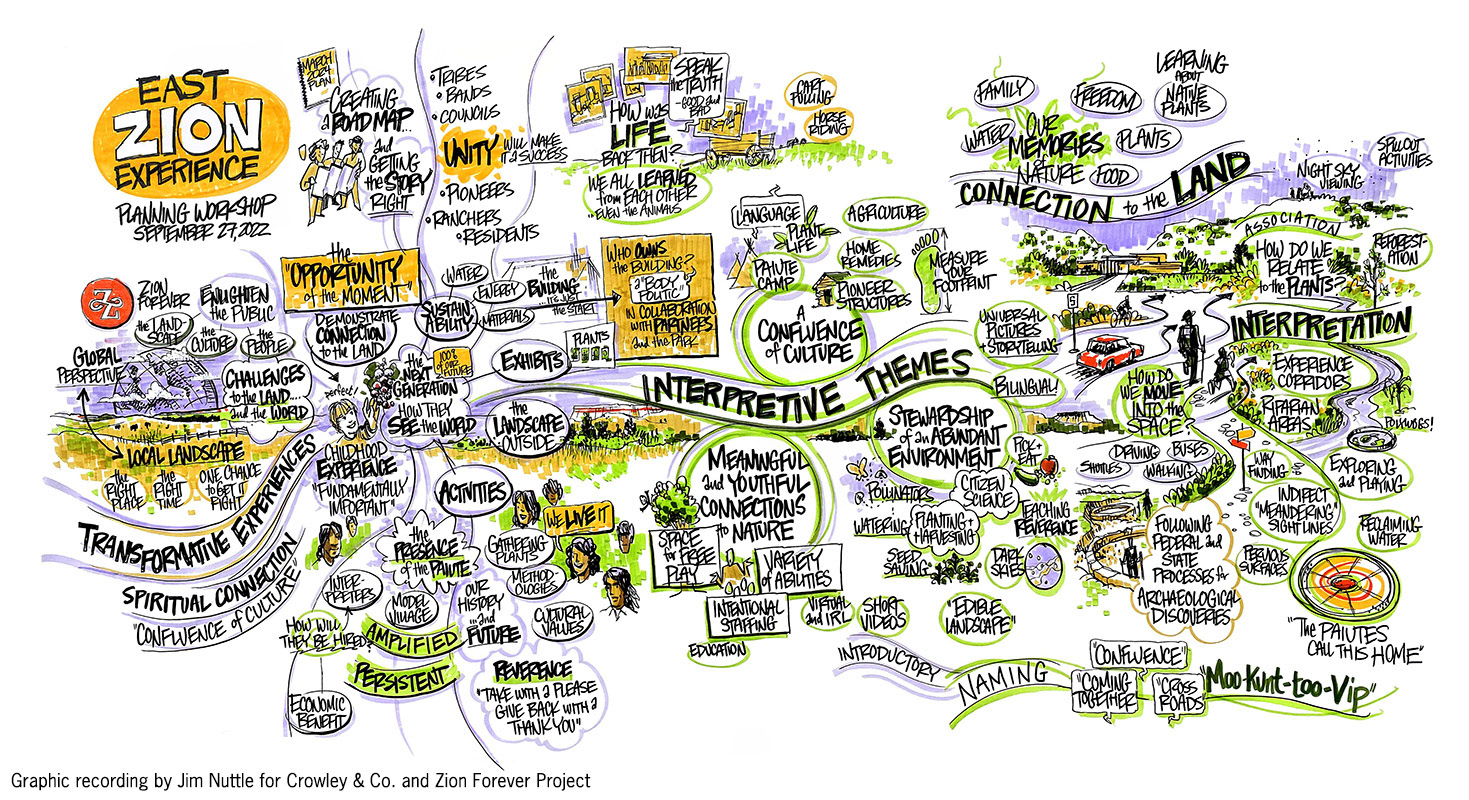 EAST
ZION
EXPERIENCE
PLANNING WORKSHOP
SEPTEMBER 27, 2022
MARCH
2024
PLAN
CREATING
a ROAD MAP...
and
GETTING
the STORY
RIGHT
TRIBES
BANDS
COUNCILS
UNITY WILL MAKE
it a SUCCESS
PIONEERS
RANCHERS
RESIDENTS
SPEAK
the TRUTH
-GOOD and
BAD
HOW WAS
LIFE
BACK THEN?
WE ALL LEARNED
from EACH OTHER
...EVEN the ANIMALS
CART
PULLING
HORSE
RIDING
FAMILY
FREEDOM
LEARNING
ABOUT
NATIVE
PLANTS
WATER
OUR
MEMORIES
of
NATURE
PLANTS
FOOD
CONNECTION to the LAND
NIGHT SKY
VIEWING
SPILLOUT
ACTIVITIES
ASSOCIATION
HOW DO WE
RELATE
to the PLANTS?
REFOREST-
ATION
ZION
FOREVER
ENLIGHTEN
the PUBLIC
the LAND
SCAPE
the
CULTURE
the
PEOPLE
GLOBAL
PERSPECTIVE
CHALLENGES
to the LAND...
and the WORLD
LOCAL LANDSCAPE
the
RIGHT
PLACE
the
RIGHT
TIME
ONE CHANCE
to GET IT
RIGHT
the
"OPPORTUNITY
of the MOMENT"
DEMONSTRATE
CONNECTION
to the LAND
perfect!
the
NEXT
GENERATION
HOW THEY
SEE the WORLD
100%
of OUR
FUTURE
CHILDHOOD
EXPERIENCE
"FUNDAMENTALLY
IMPORTANT"
WATER
ENERGY
SUSTAIN
ABILITY
MATERIALS
the
BUILDING
IT'S JUST
the START
WHO OWNS
the BUILDING?
a "BODY
POLITIC"
IN COLLABORATION
WITH PARTNERS
and the PARK
EXHIBITS
PLANTS
the
LANDSCAPE
OUTSIDE
ACTIVITIES
TRANSFORMATIVE EXPERIENCES
SPIRITUAL CONNECTION
"CONFLUENCE of CULTURE"
the
PRESENCE
of the PAIUTE
INTER-
PRETERS
HOW WILL
THEY BE HIRED?
MODEL
VILLAGE
AMPLIFIED
PERSISTENT
ECONOMIC
BENEFIT
OUR
HISTORY
...and
FUTURE
GATHERING
PLANTS
METHOD-
OLOGIES
CULTURAL
VALUES
WE LIVE IT
REVERENCE
"TAKE WITH a PLEASE
GIVE BACK WITH a
THANK YOU"
INTERPRETIVE THEMES
LANGUAGE
PLANT
LIFE
AGRICULTURE
PAIUTE
CAMP
HOME
REMEDIES
PIONEER
STRUCTURES
MEASURE
YOUR
FOOTPRINT
A
CONFLUENCE
of CULTURE
UNIVERSAL
PICTURES
+ STORYTELLING
BILINGUAL!
STEWARDSHIP
of an ABUNDANT
ENVIRONMENT
PICK+
EAT
CITIZEN
SCIENCE
POLLINATORS
WATERING
PLANTING +
HARVESTING
TEACHING
REVERENCE
SEED
SAVING
DARK
SKIES
"EDIBLE
LANDSCAPE"
MEANINGFUL
and YOUTHFUL
CONNECTIONS
to NATURE
SPACE
for FREE
PLAY
VARIETY
of ABILITIES
INTENTIONAL
STAFFING
VIRTUAL
and IRL
SHORT
VIDEOS
EDUCATION
INTERPRETATION
HOW DO
WE MOVE
INTO the
SPACE?
DRIVING
BUSES
SHUTTLES
WALKING
EXPERIENCE
CORRIDORS
RIPARIAN
AREAS
WAY
FINDING
EXPLORING
and PLAYING
INDIRECT
"MEANDERING"
SIGHT LINES
RECLAIMING
WATER
PERVIOUS
SURFACES
FOLLOWING
FEDERAL and
STATE
PROCESSES for
ARCHAEOLOGICAL
DISCOVERIES
"The PAIUTES
CALL THIS HOME"
INTRODUCTORY
NAMING
"CONFLUENCE"
"COMING
TOGETHER"
"CROSS
ROADS"
"Moo-Kunt-too-Vip"
Graphic recording by Jim Nuttle for Crowley & Co. and Zion Forever Project